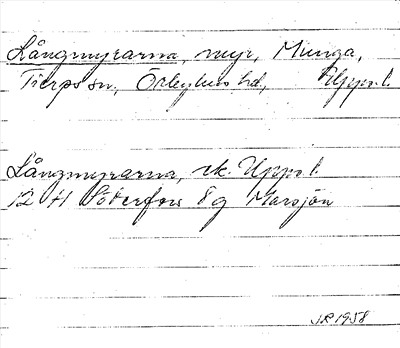 Långmyrarna, myr, Munga,
Tierps sn, Örbyhus hd, Upps. l.
Långmyrarna, ek. Upps. l.
12 H Söderfors 8 g Marsjön
JR 1958